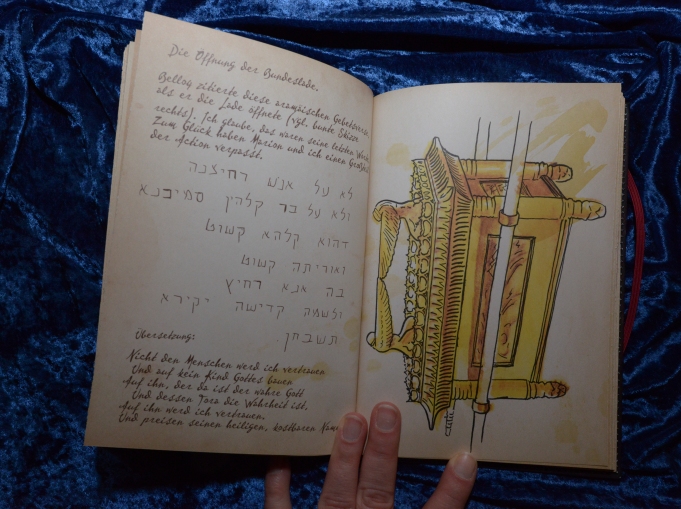 Die Öffnung der Bundeslade.
Belloq zitierte diese aramäischen Gebetsverse,
als er die Lade öffnete (vgl. bunte Skizze
rechts). Ich glaube, das waren seine letzten
Zum Glück haben Marion und ich einen
der Action verpasst.
לא על אנש רחיצנה
ולא על בר קלהין סמיכנא
דהוא קלהא קשוט
ואוריתה קשוט
בה אנא רחיץ
ולשמה קדישה יקירא
תשבחן
Übersetzung:
Nicht den Menschen werd ich vertrauen
Und auf kein Kind Gottes bauen
Auf ihn, der da ist der wahre Gott
Und dessen Tora die Wahrheit ist.
Auf ihn werd ich vertrauen.
Und preisen seinen heiligen, kostbaren